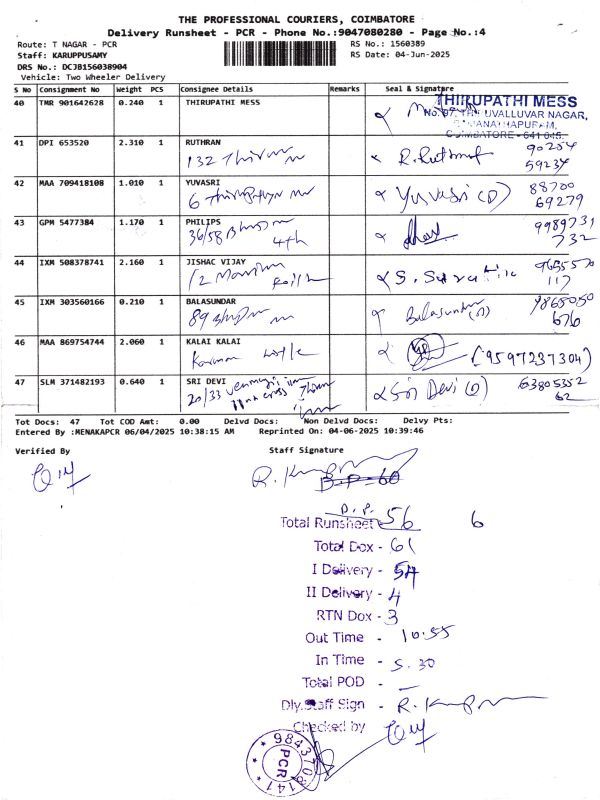 THE PROFESSIONAL COURIERS, COIMBATORE
Delivery Runsheet - PCR - Phone No.:9047080280 - Page No.:4
Route: T NAGAR - PCR RS No.: 1560389
Staff: KARUPPUSAMY RS Date: 04-Jun-2025
DRS No.: DCJB156038904
Vehicle: Two Wheeler Delivery
S No Consignment No Weight PCS Consignee Details Remarks Seal & Signature
40 TMR 901642628 0.240 1 THIRUPATHI MESS THIRUPATHI MESS
No. 97, THIRUVALLUVAR NAGAR,
RAMANATHAPURAM,
COIMBATORE - 641 045.
41 DPI 653520 2.310 1 RUTHRAN 90204
132 R. Ruthra 59234
42 MAA 709418108 1.010 1 YUVASRI 88700
6 Yuvasri 69279
43 GPM 5477384 1.170 1 PHILIPS 9989731
36/58 4th 732
44 IXM 508378741 2.160 1 JISHAC VIJAY
S. 117
45 IXM 303560166 0.210 1 BALASUNDAR
89 Balasundar 676
46 MAA 869754744 2.060 1 KALAI KALAI
(9597237304)
47 SLM 371482193 0.640 1 SRI DEVI 63805352
20/33 Sri Devi 62
11th cross
Tot Docs: 47 Tot COD Amt: 0.00 Delvd Docs: Non Delvd Docs: Delvy Pts:
Entered By :MENAKAPCR 06/04/2025 10:38:15 AM Reprinted On: 04-06-2025 10:39:46
Verified By Staff Signature
D.P-60
D.P.
Total Runsheet 56 6
Total Dox - 61
I Delivery - 54
II Delivery - 4
RTN Dox - 3
Out Time - 10.55
In Time - 5.30
Total POD - —
Dly.Staff Sign -
Checked by
9843708147
PCR